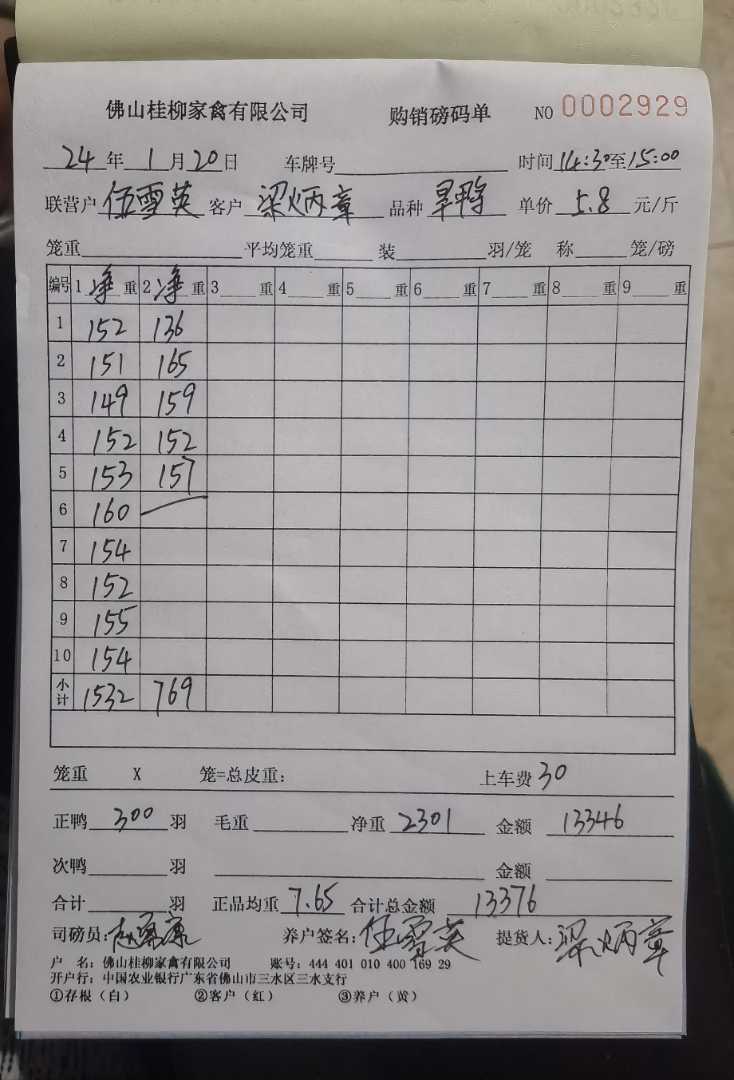 佛山桂柳家禽有限公司 购销磅码单 NO 0002929
24 年 1 月 20 日 车牌号 时间 14:30至15:00
联营户 伍雪英 客户 梁炳章 品种 旱鸭 单价 5.8 元/斤
笼重 平均笼重 装 羽/笼 称 笼/磅
编号 1 净 重 2 净 重 3 重 4 重 5 重 6 重 7 重 8 重 9 重
1 152 136
2 151 165
3 149 159
4 152 152
5 153 157
6 160
7 154
8 152
9 155
10 154
小计 1532 769
笼重 X 笼=总皮重: 上车费 30
正鸭 300 羽 毛重 净重 2301 金额 13346
次鸭 羽 金额
合计 羽 正品均重 7.65 合计总金额 13376
司磅员: 养户签名: 伍雪英 提货人: 梁炳章
户 名: 佛山桂柳家禽有限公司 账号: 444 401 010 400 169 29
开户行: 中国农业银行广东省佛山市三水区三水支行
①存根(白) ②客户(红) ③养户(黄)